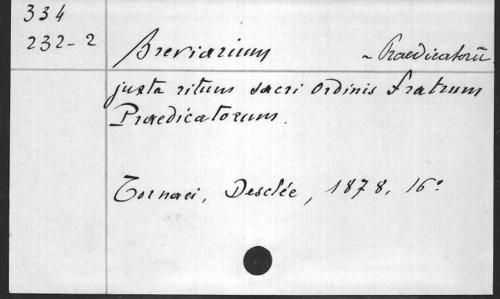 334
232-2
Breviarium ~ Praedicatorū
juxta ritum sacri Ordinis Fratrum
Praedicatorum.
Tornaci, Desclée, 1878, 16°